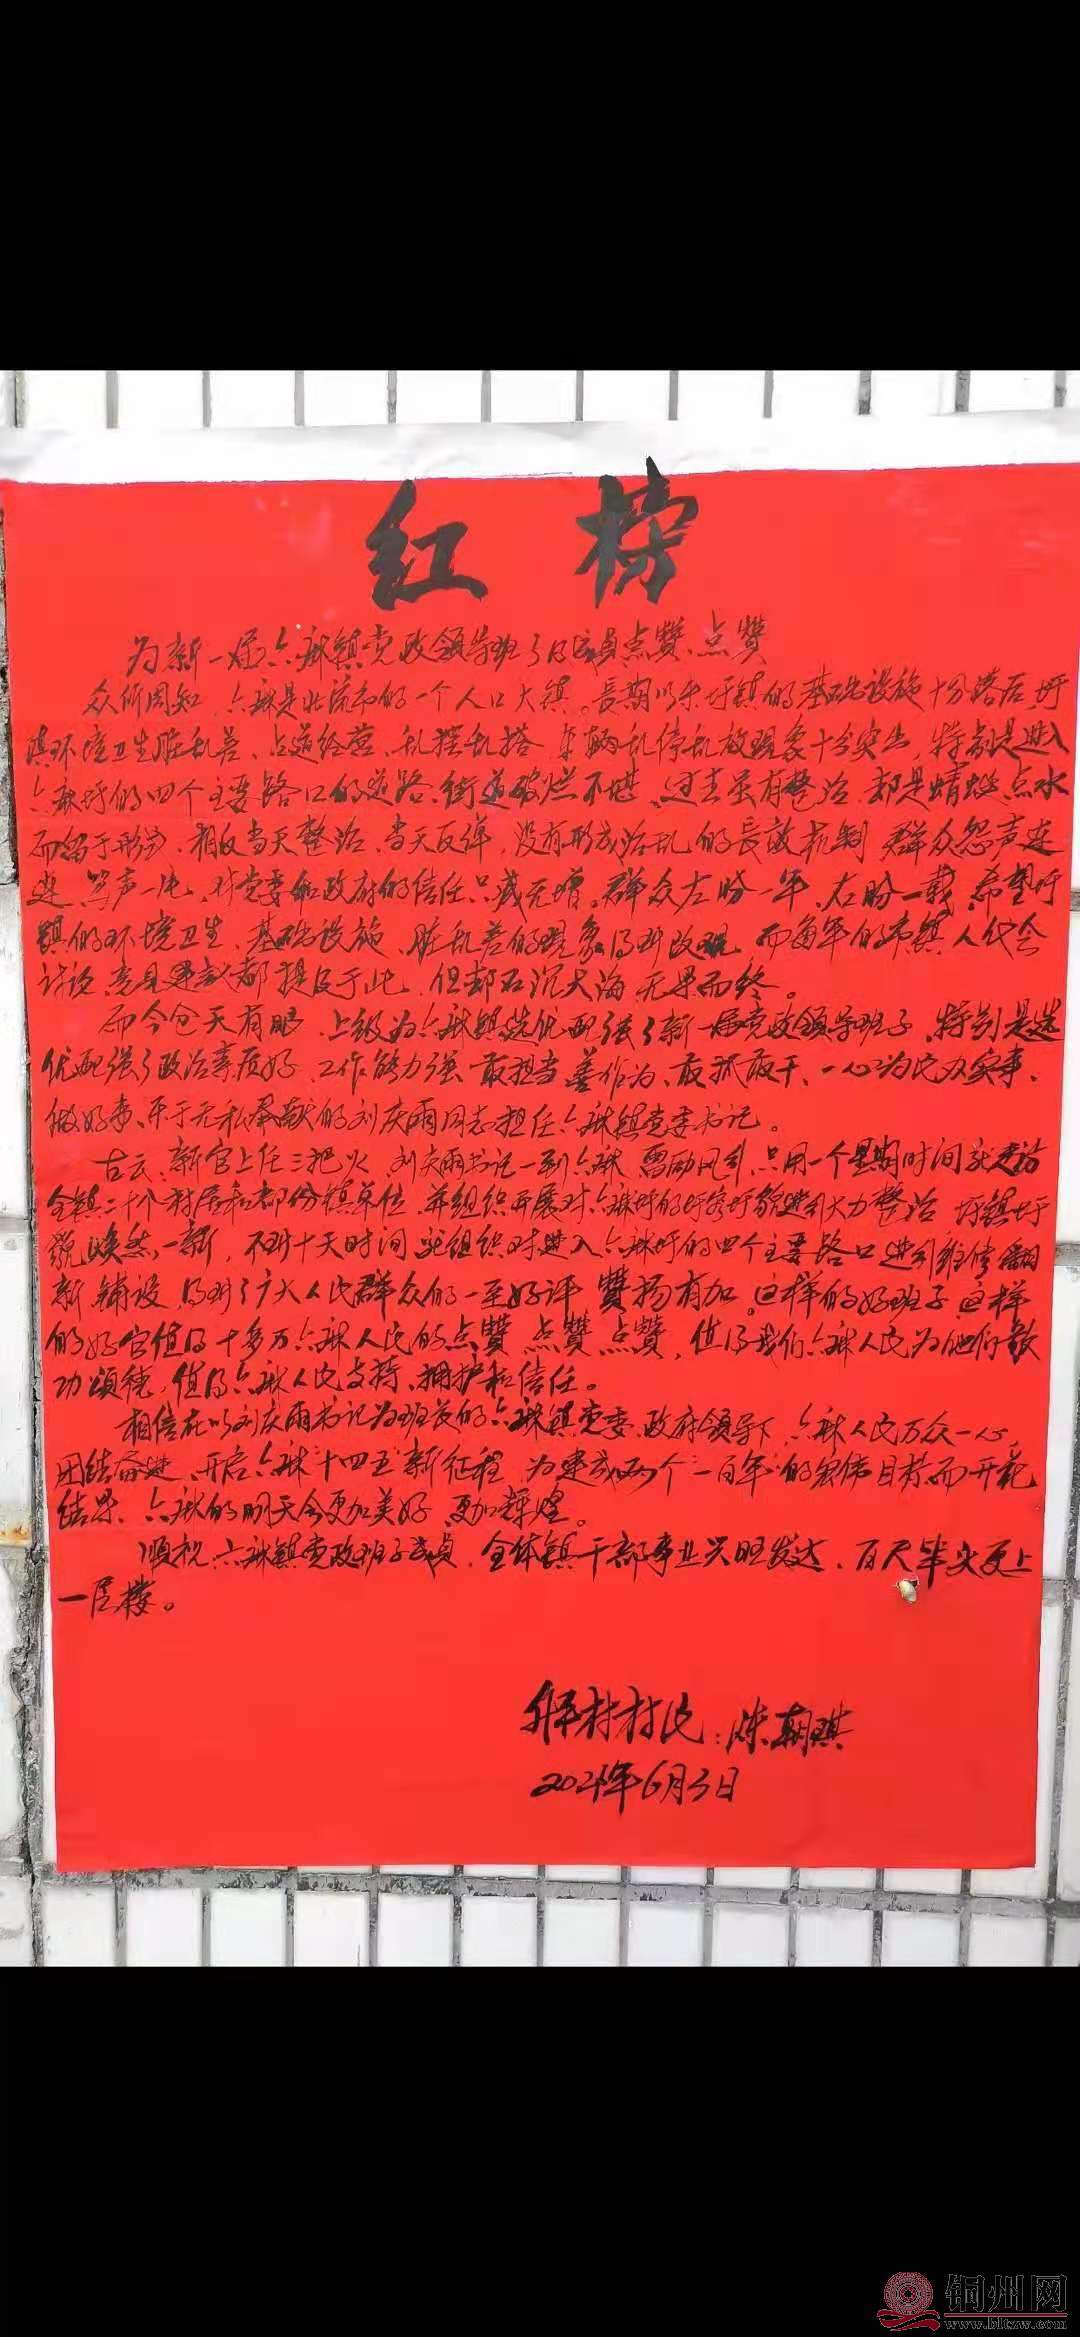 红榜
为新一届六麻镇党政领导班子成员点赞、点赞
众所周知，六麻是北流市的一个人口大镇。長期以来圩镇的基础设施十分落后，圩
镇环境卫生脏乱差、占道经营、乱摆乱搭、车辆乱停乱放现象十分突出，特别是进入
六麻圩的四个主要路口的道路、街道破烂不堪、过去虽有整治，却是蜻蜓点水
而留于形式、相反当天整治、当天反弹，没有形成治乱的長效机制，群众怨声连
连、骂声一片，对党委和政府的信任只减无增。群众左盼一年、右盼一载，希望圩
镇的环境卫生、基础设施、脏乱差的现象得到改观，而每年的市镇人代会
讨论、意见建议都提及于此，但却石沉大海，无果而终。
而今仓天有眼，上级为六麻镇选优配强了新一届党政领导班子，特别是选
优配强了政治素质好、工作能力强、敢担当、善作为、敢抓敢干、一心为民办实事、
做好事、乐于无私奉献的刘庆雨同志担任六麻镇党委书记。
古云，新官上任三把火，刘庆雨书记一到六麻，雷励风行，只用一个星期时间就走访
全镇二十个村居和部份镇单位，并组织开展对六麻圩的圩容圩貌进行大力整治，圩镇圩
貌焕然一新，不到十天时间，就组织对进入六麻圩的四个主要路口进行维修翻
新铺设，得到了广大人民群众的一至好评，赞扬有加。这样的好班子，这样
的好官值得十多万六麻人民的点赞、点赞、点赞，值得我们六麻人民为他们歌
功颂德，值得六麻人民支持、拥护和信任。
相信在以刘庆雨书记为班长的六麻镇党委、政府领导下，六麻人民万众一心，
团结奋进，开启六麻"十四五"新征程，为建成两个"一百年"的宏伟目标而开花
结果，六麻的明天会更加美好，更加辉煌。
顺祝六麻镇党政班子成员，全体镇干部事业兴旺发达，百尺竿头更上
一层楼。
村村民：陈朝琪
2021年6月3日
铜州网
www.bltzw.com